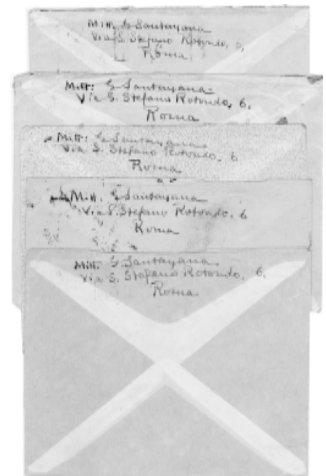 Mitt: G. Santayana
Via S. Stefano Rotondo, 6,
Roma
Mitt: G. Santayana
Via S. Stefano Rotondo, 6.
Roma
Mitt: G. Santayana
Via S. Stefano Rotondo, 6
Roma
Mitt. G. Santayana
Via S. Stefano Rotondo, 6
Roma
Mitt. G. Santayana
Via S. Stefano Rotondo, 6.
Roma